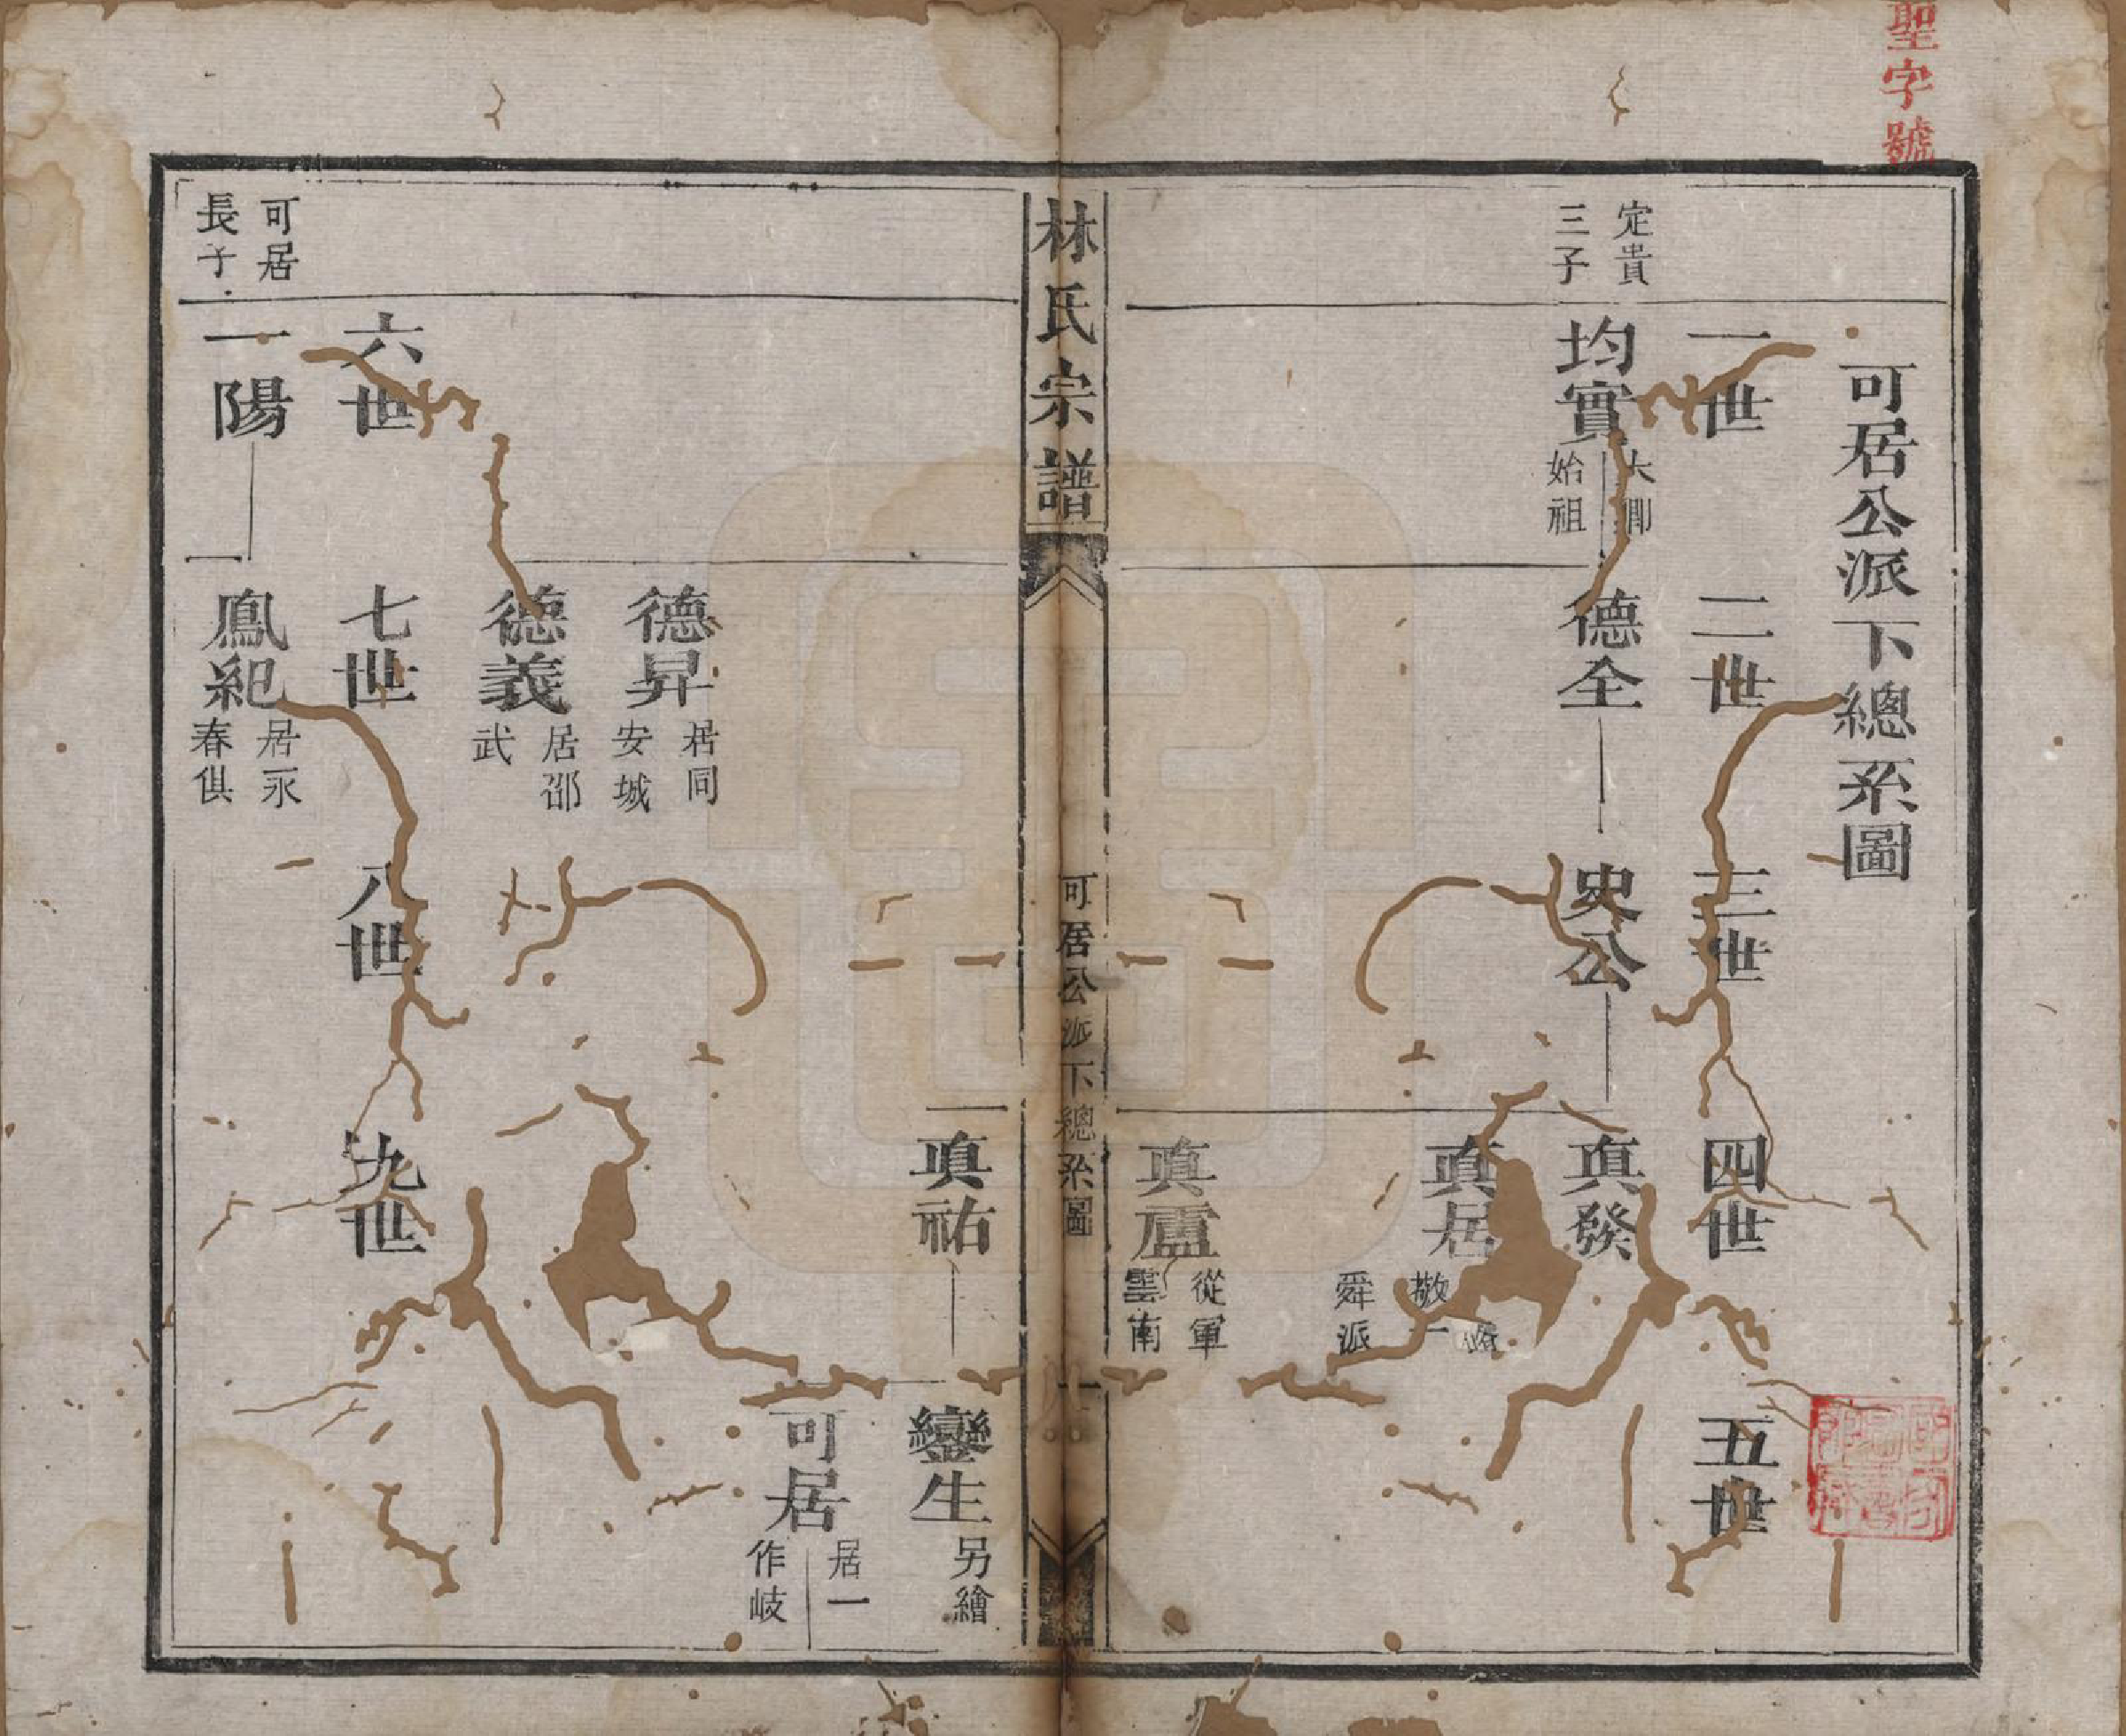 聖字號
可居公派下總系圖
一世
二世
三世
四世
五世
定貴
三子
均實
大卿
始祖
德全
史公
真發
真居
敬一
舜派
真盧
從軍
雲南
林氏宗譜
可居公派下總系圖
一
真祐
孿生
另繪
可居
居一
作岐
德昇
居同
安城
德義
居邵
武
六世
七世
八世
九世
可居
長子
一陽
鳳紀
居永
春俱